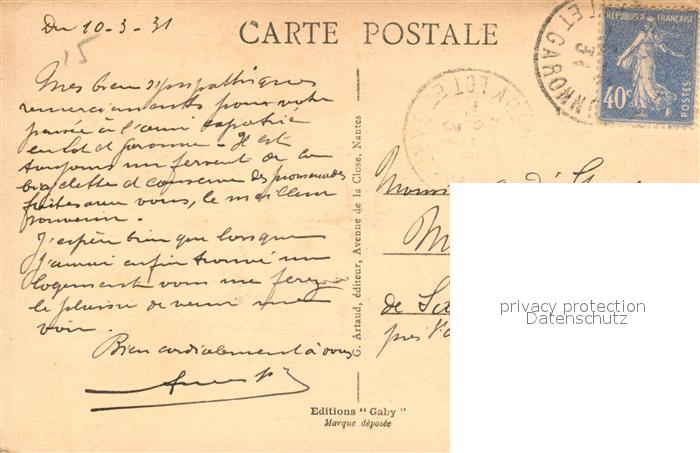 Du 10-3-31
15
CARTE POSTALE
Mes bien sympathiques
remerciements pour votre
pensée à l'ami expatrié
en Lot et Garonne. Il est
toujours un fervent de la
bicyclette et conserve des promenades
faites avec vous, le meilleur
souvenir.
J'espère bien que lorsque
j'aurai enfin trouvé un
logement vous me ferez
le plaisir de venir me
voir.
Bien cordialement à vous
G. Artaud, éditeur, Avenue de la Close, Nantes
Editions "Gaby"
Marque déposée
LOT ET GARONNE
31
RÉPUBLIQUE FRANÇAISE
40c
POSTES
LOT
Monsieur
de
près
privacy protection
Datenschutz